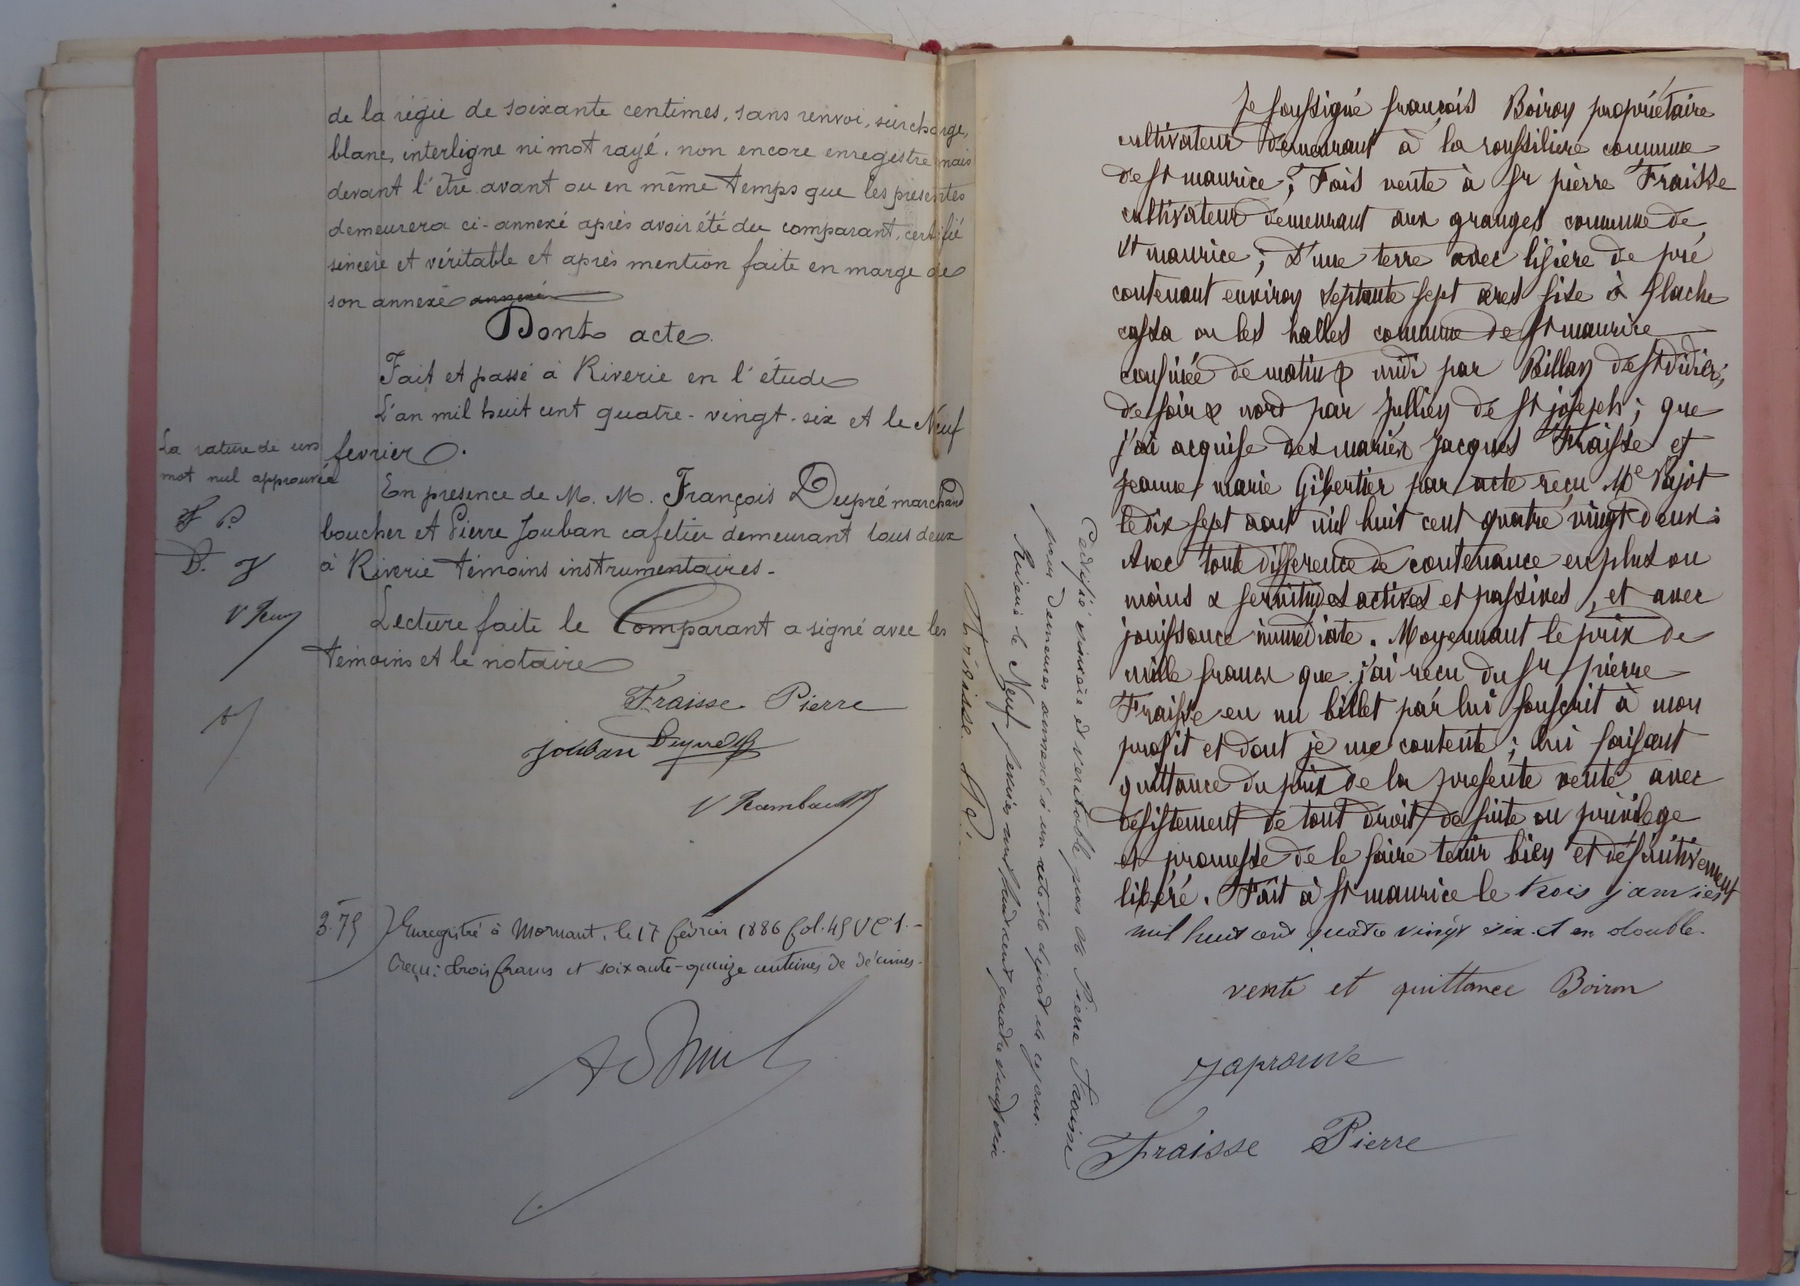 de la régie de soixante centimes, sans renvoi, surcharge,
blanc, interligne ni mot rayé, non encore enregistré mais
devant l'être avant ou en même temps que les présentes
demeurera ci-annexé après avoir été du comparant, certifié
sincère et véritable et après mention faite en marge de
son annexé annexé
Dont acte.
Fait et passé à Riverie en l'étude
L'an mil huit cent quatre-vingt-six et le Neuf
fevrier.
La rature de un
mot nul approuvée
F P.
D. J
V Ram
En présence de M. M. François Dupré marchand
boucher et Pierre Jouban cafetier demeurant tous deux
à Riverie témoins instrumentaires.
Lecture faite le Comparant a signé avec les
témoins et le notaire
Fraisse Pierre
Jouban Dupré
V Rambault
3.75
Enregistré à Mornant, le 17 février 1886 fol. 45 V C 1.
Reçu: trois francs et soixante-quinze centimes de décimes.
Certifié sincère et veritable par M. Pierre Fraisse
pour demeurer annexé à un acte de dépot de ce jour.
Riverie le Neuf fevrier mil huit cent quatre vingt six
Fraisse P.
Je soussigné françois Boiron propriétaire
cultivateur demeurant à la roussiliere commune
de st maurice; Fais vente à sr pierre Fraisse
cultivateur demeurant aux granges commune de
st maurice; D'une terre avec lisière de pré
contenant environ septante sept ares sise à Flache
cassa ou les halles commune de st maurice
confinée de matin & midi par Billon de st didier;
de soir & nord par Jullien de st joseph; que
j'ai acquise des mariés Jacques Fraisse et
jeanne marie Gibertier par acte reçu Me Pajot
le dix sept aout mil huit cent quatre vingt deux.
Avec toute difference de contenance en plus ou
moins & servitudes actives et passives, et avec
jouissance immediate. Moyennant le prix de
mille francs que j'ai recu du sr pierre
Fraisse en un billet par lui souscrit à mon
profit et dont je me contente; lui faisant
quittance du prix de la presente vente avec
désistement de tout droit de suite ou privilege
et promesse de le faire tenir bien et définitivement
libéré. Fait à st maurice le trois janvier
mil huit cent quatre vingt six et en double.
vente et quittance Boiron
japrouve
Fraisse Pierre